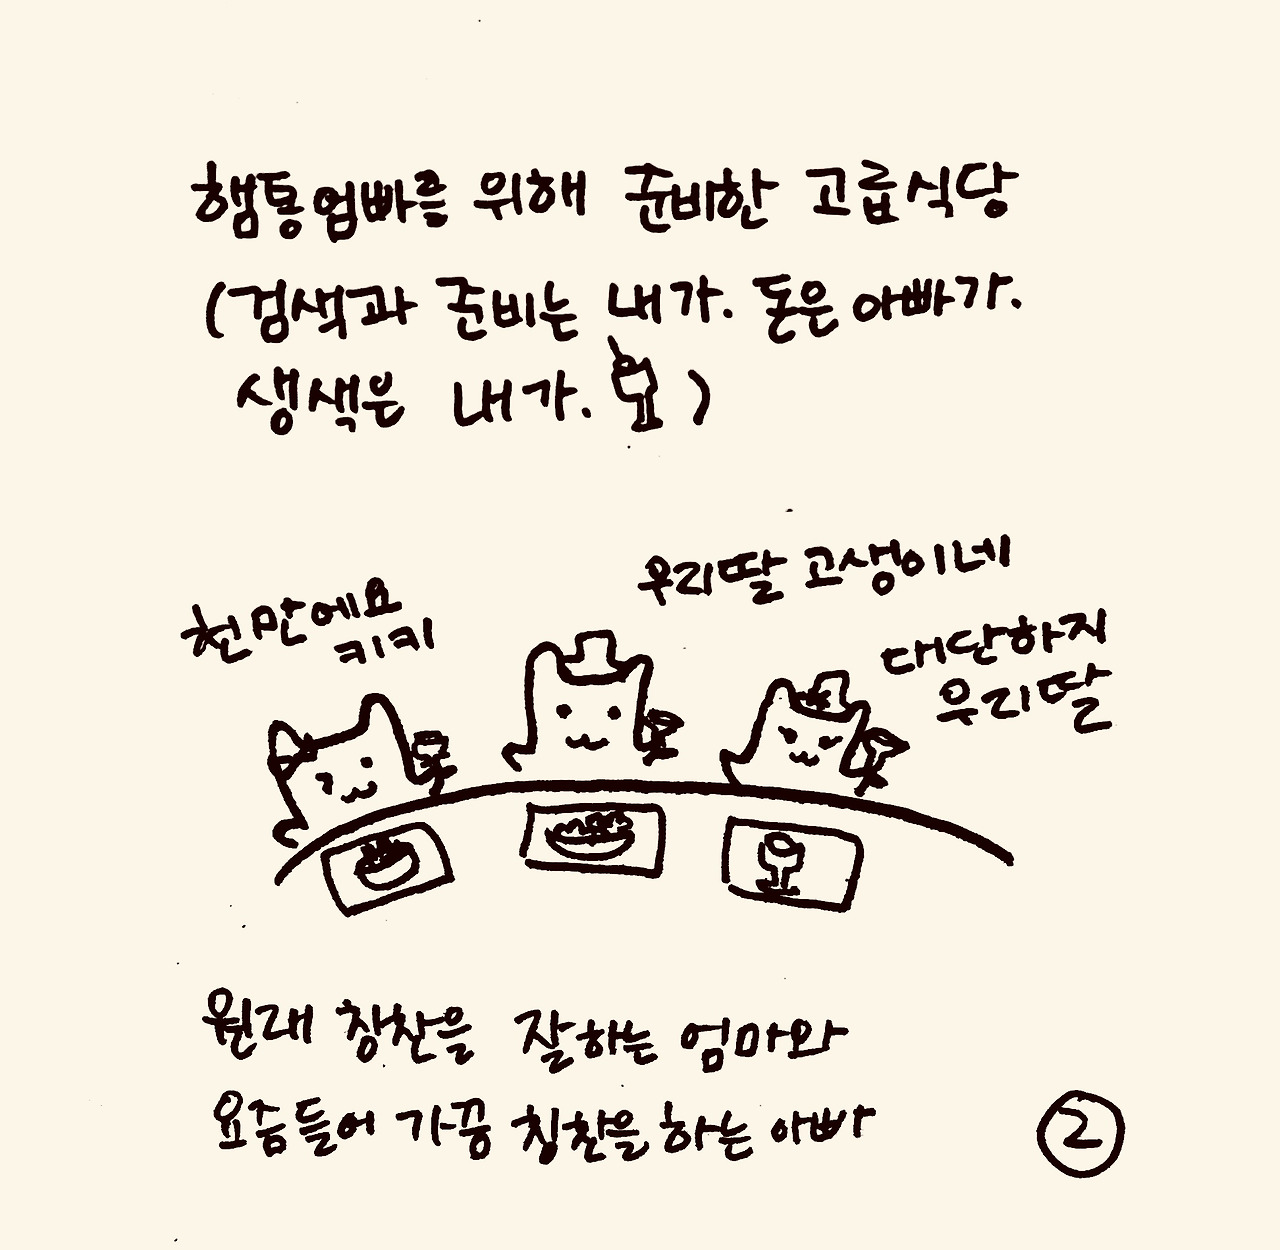 햄통엄빠를 위해 준비한 고급식당
(검색과 준비는 내가. 돈은 아빠가.
생색은 내가. )
우리딸 고생이네
천만에요
키키
대단하지
우리딸
원래 칭찬을 잘하는 엄마와
요즘들어 가끔 칭찬을 하는 아빠
2